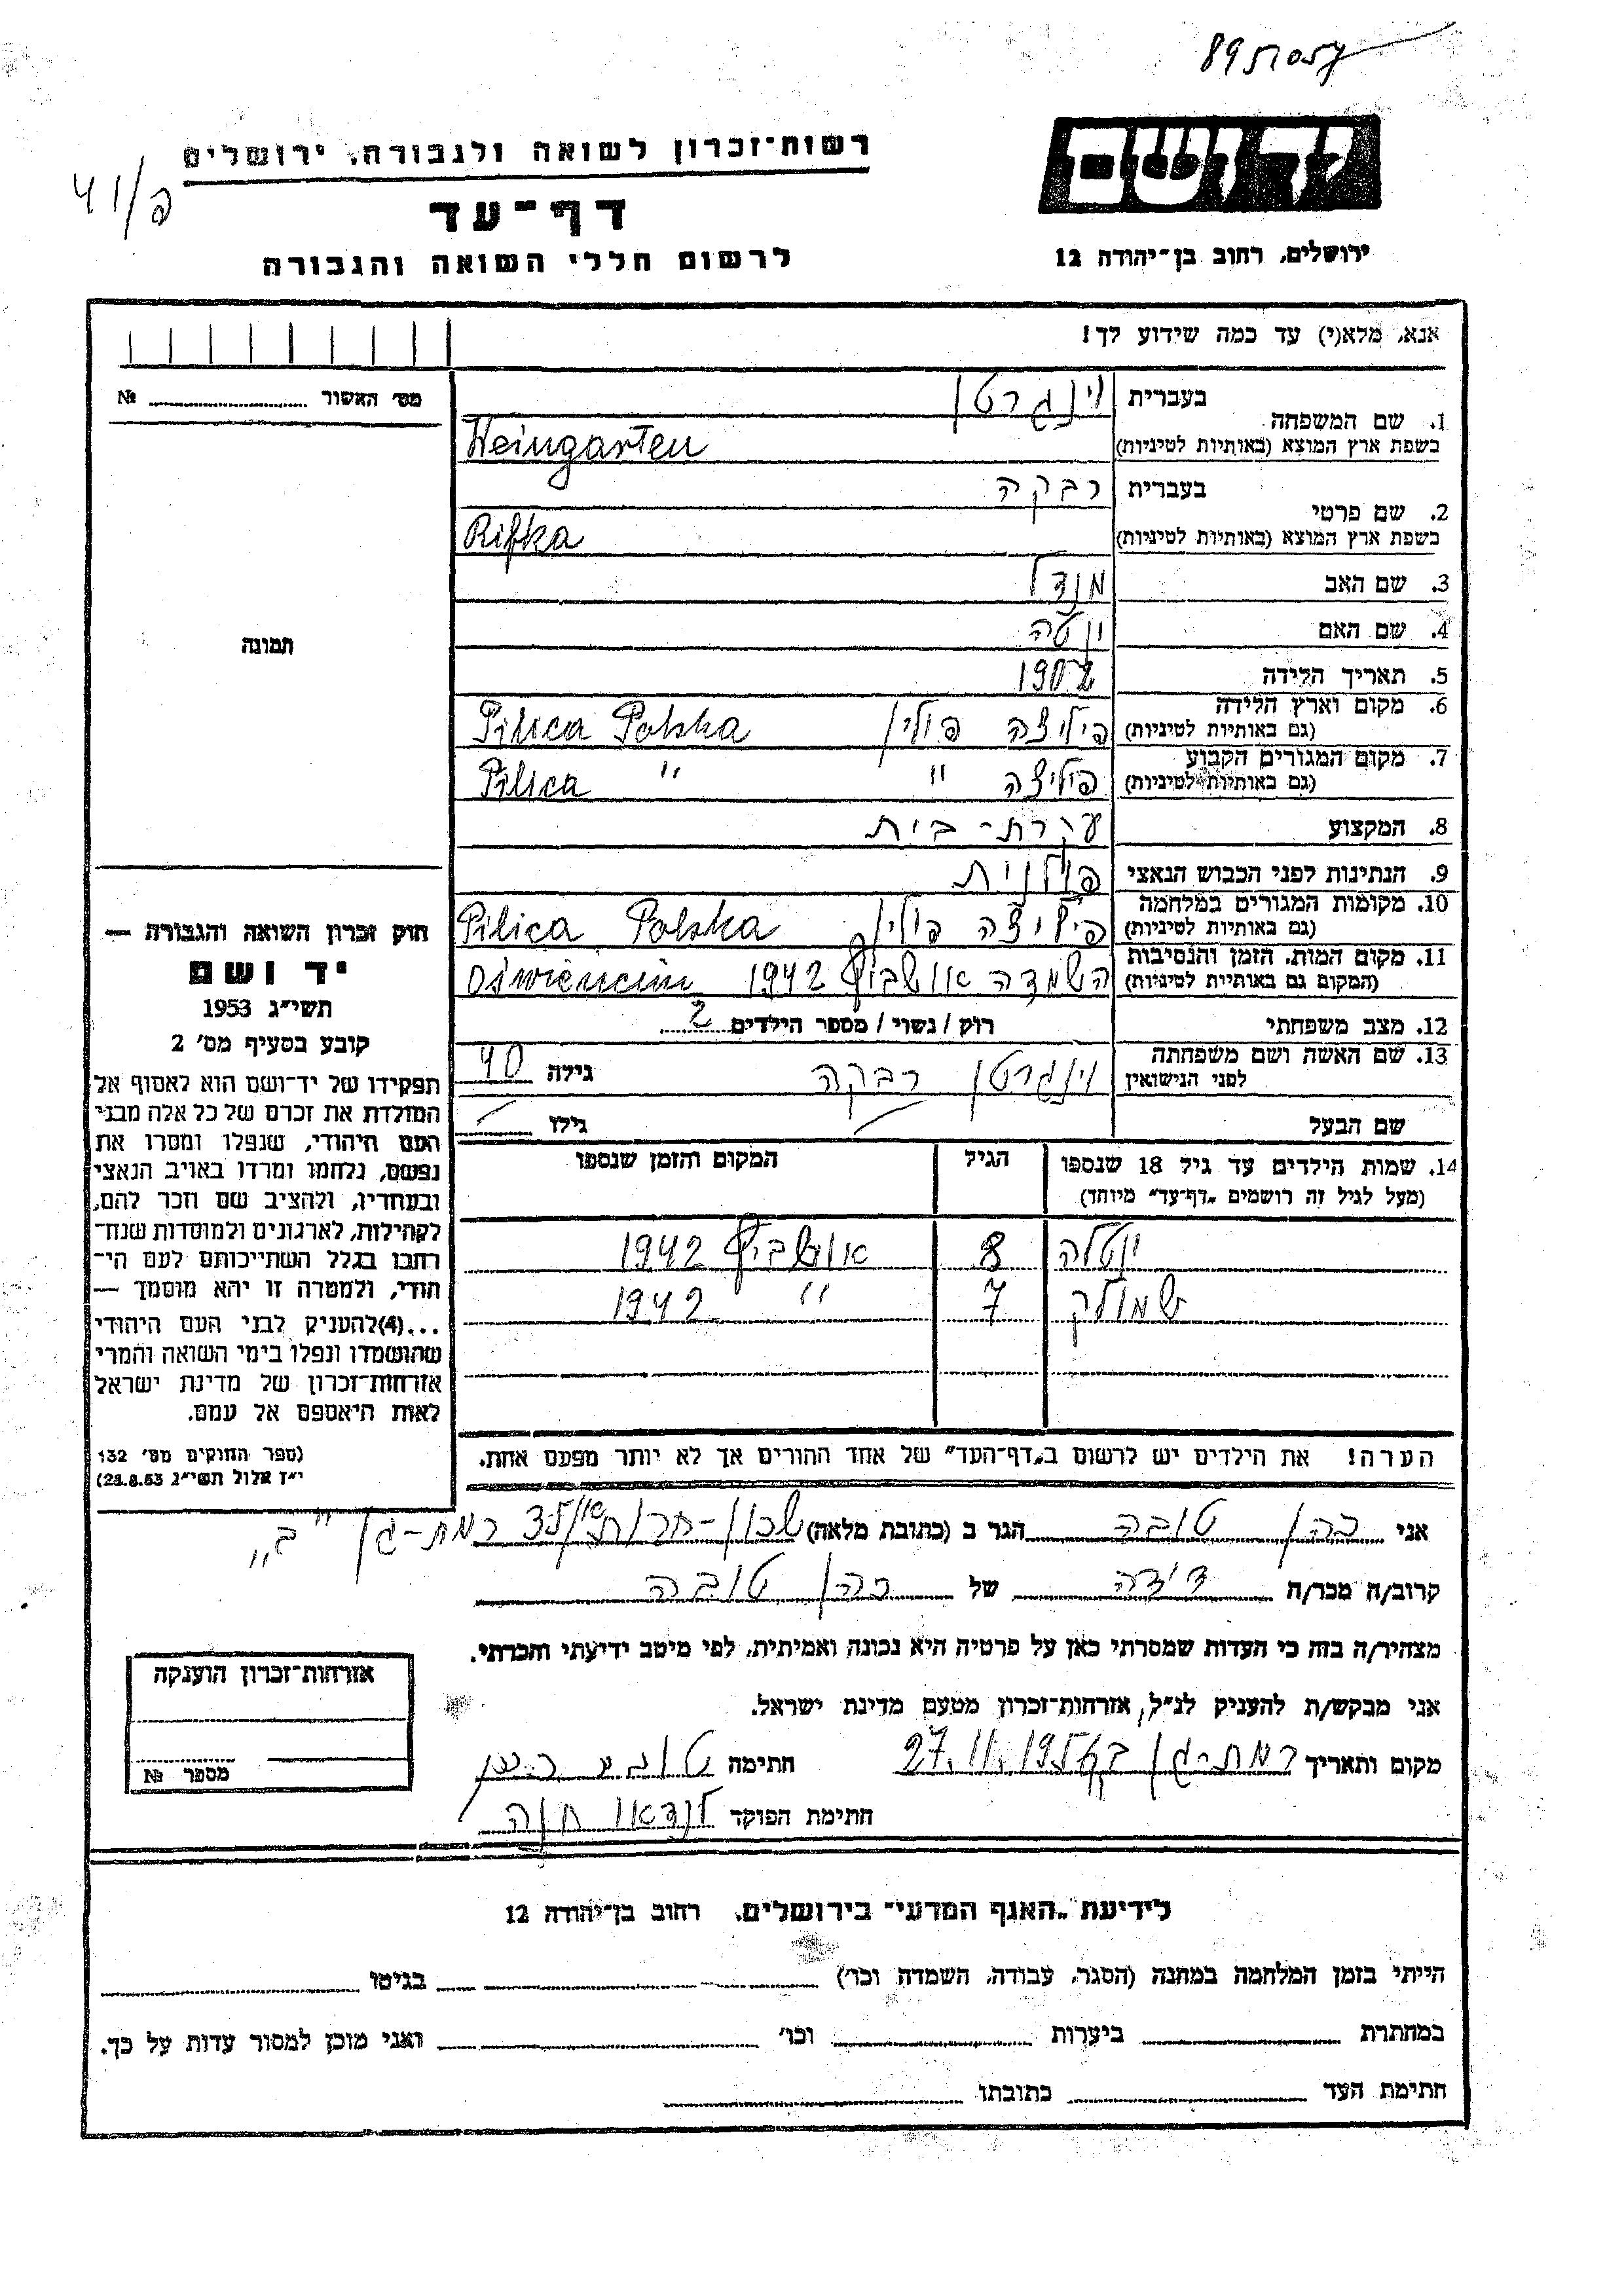 רשות־זכרון לשואה ולגבורה, ירושלים
דף־עד
לרשום חללי השואה והגבורה
יד ושם
ירושלים, רחוב בן־יהודה 12
אנא, מלא(י) עד כמה שידוע לך!
מס׳ האשור № 
1. שם המשפחה בעברית וינגרטן
בשפת ארץ המוצא (באותיות לטיניות) Weingarten
2. שם פרטי בעברית רבקה
בשפת ארץ המוצא (באותיות לטיניות) Rifka
3. שם האב מנדל
4. שם האם יוטה
5. תאריך הלידה 1902
6. מקום וארץ הלידה (גם באותיות לטיניות) פיליצה פולין Pilica Polska
7. מקום המגורים הקבוע (גם באותיות לטיניות) פיליצה " Pilica "
8. המקצוע עקרת-בית
9. הנתינות לפני הכבוש הנאצי פולנית
10. מקומות המגורים במלחמה (גם באותיות לטיניות) פיליצה פולין Pilica Polska
11. מקום המות, הזמן והנסיבות (המקום גם באותיות לטיניות) השמדה אושביץ 1942 Oświęncim
12. מצב משפחתי רוק/נשוי/מספר הילדים 2
13. שם האשה ושם משפחתה לפני הנישואין וינגרטן רבקה גילה 40
שם הבעל גילו
14. שמות הילדים עד גיל 18 שנספו
(מעל לגיל זה רושמים „דף־עד״ מיוחד)
הגיל
המקום והזמן שנספו
יוטלה 8 אושביץ 1942
שמולק 7 " 1942
הערה! את הילדים יש לרשום ב„דף־העד״ של אחד ההורים אך לא יותר מפעם אחת.
תמונה
חוק זכרון השואה והגבורה —
יד ושם
תשי״ג 1953
קובע בסעיף מס׳ 2
תפקידו של יד־ושם הוא לאסוף אל
המולדת את זכרם של כל אלה מבני
העם היהודי, שנפלו ומסרו את
נפשם, נלחמו ומרדו באויב הנאצי
ובעוזריו, ולהציב שם וזכר להם,
לקהילות, לארגונים ולמוסדות שנח־
רחבו בגלל השתייכותם לעם הי־
הודי, ולמטרה זו יהא מוסמך —
...(4)להעניק לבני העם היהודי
שהושמדו ונפלו בימי השואה והמרי
אזרחות־זכרון של מדינת ישראל
לאות היאספם אל עמם.
(ספר החוקים מס׳ 132
י״ז אלול תשי״ג 28.8.53)
אני כהן טובה הגר ב (כתובת מלאה) שכון-חרות רמת-גן "ב"
קרוב/ה מכר/ה דודה של כהן טובה
מצהיר/ה בזה כי העדות שמסרתי כאן על פרטיה היא נכונה ואמיתית, לפי מיטב ידיעתי והכרתי.
אני מבקש/ת להעניק לנ״ל, אזרחות־זכרון מטעם מדינת ישראל.
מקום ותאריך רמת-גן 27.11.1956 חתימה טובע כהן
חתימת הפוקד לנדאו חוה
אזרחות־זכרון הוענקה
מספר №
לידיעת „האגף המדעי״ בירושלים, רחוב בן־יהודה 12
הייתי בזמן המלחמה במחנה (הסגר, עבודה, השמדה וכו׳) בגיטו
במחתרת ביערות וכו׳ ואני מוכן למסור עדות על כך.
חתימת העד כתובתו